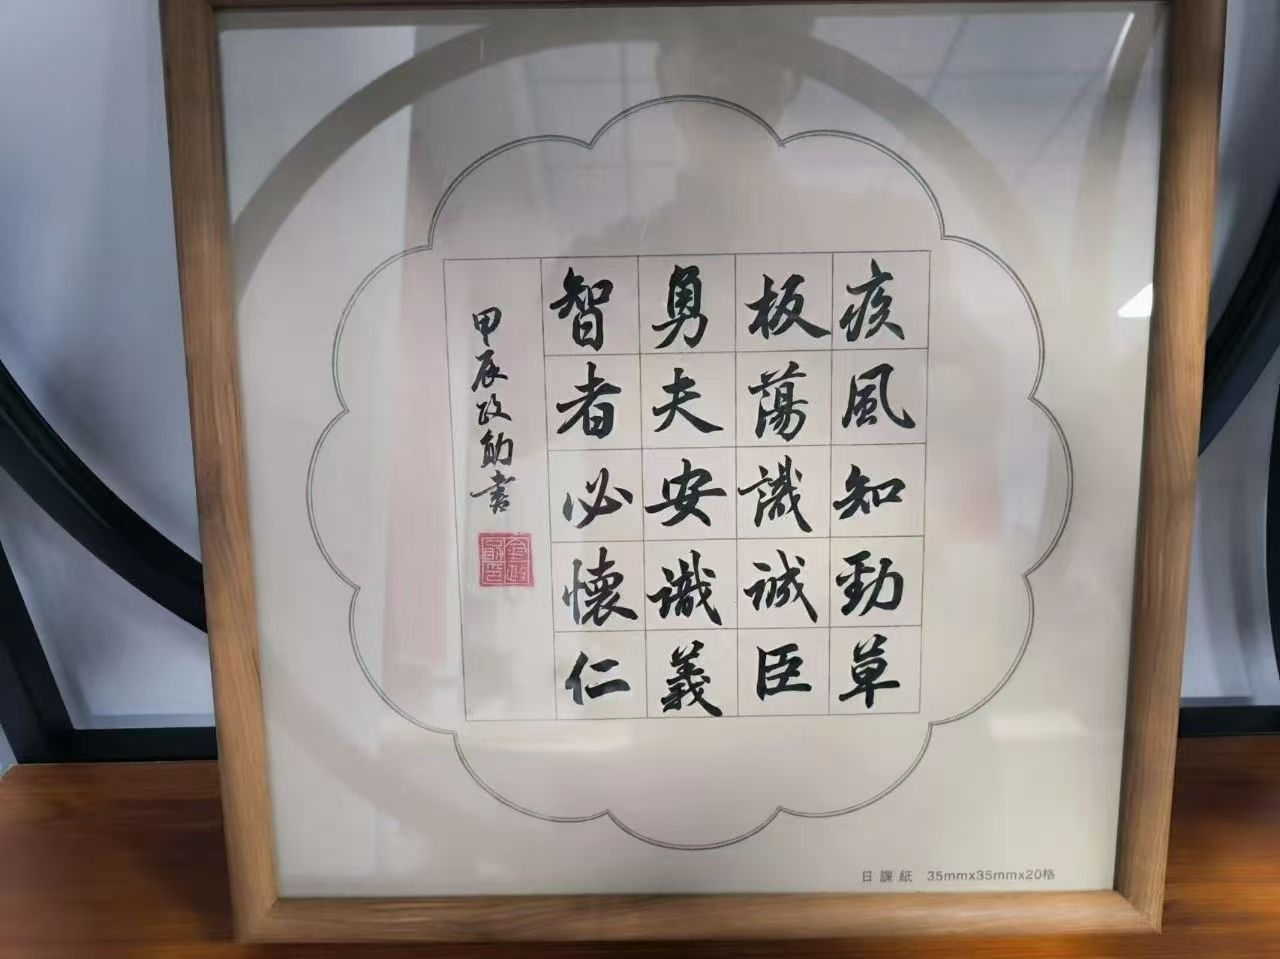 疾風知勁草
板蕩識誠臣
勇夫安識義
智者必懷仁
甲辰政勛書
日課紙 35mmx35mmx20格